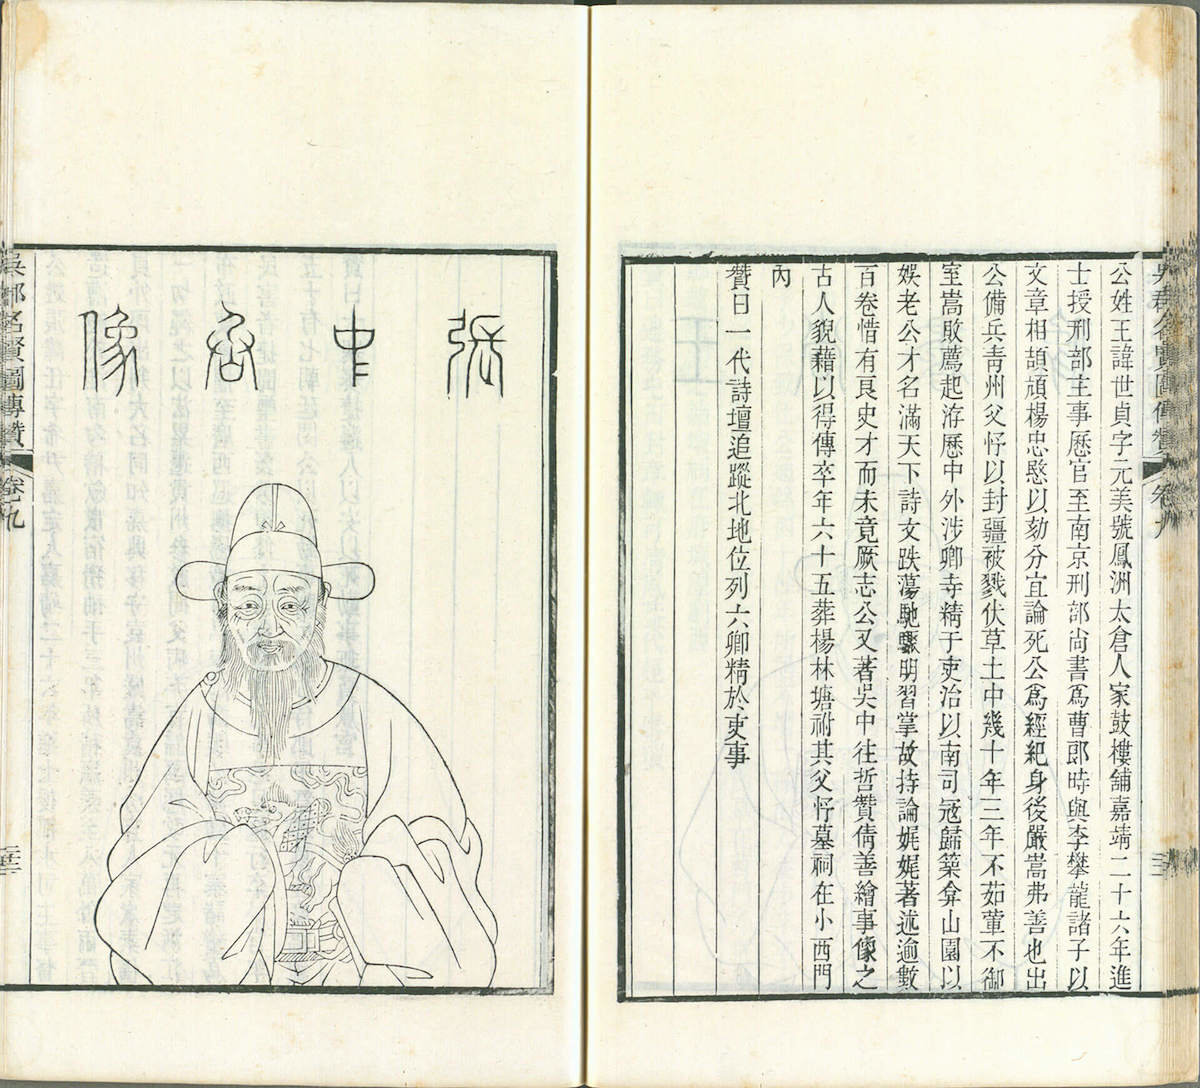 公姓王諱世貞字元美號鳳洲太倉人家鼓樓舖嘉靖二十六年進
士授刑部主事歷官至南京刑部尙書爲曹郎時與李攀龍諸子以
文章相頡頏楊忠愍以劾分宜論死公爲經紀身後嚴嵩弗善也出
公備兵靑州父忬以封疆被戮伏草土中幾十年三年不茹葷不御
室嵩敗薦起洊歷中外涉卿寺精于吏治以南司冦歸築弇山園以
娛老公才名滿天下詩文跌蕩馳驟明習掌故持論娓娓著述逾數
百卷惜有良史才而未竟厥志公又著吳中往哲贊倩善繪事像之
古人貌藉以得傳卒年六十五葬楊林塘祔其父忬墓祠在小西門
內
贊曰一代詩壇追蹤北地位列六卿精於吏事
張中丞像
吳郡名賢圖傳贊 卷九